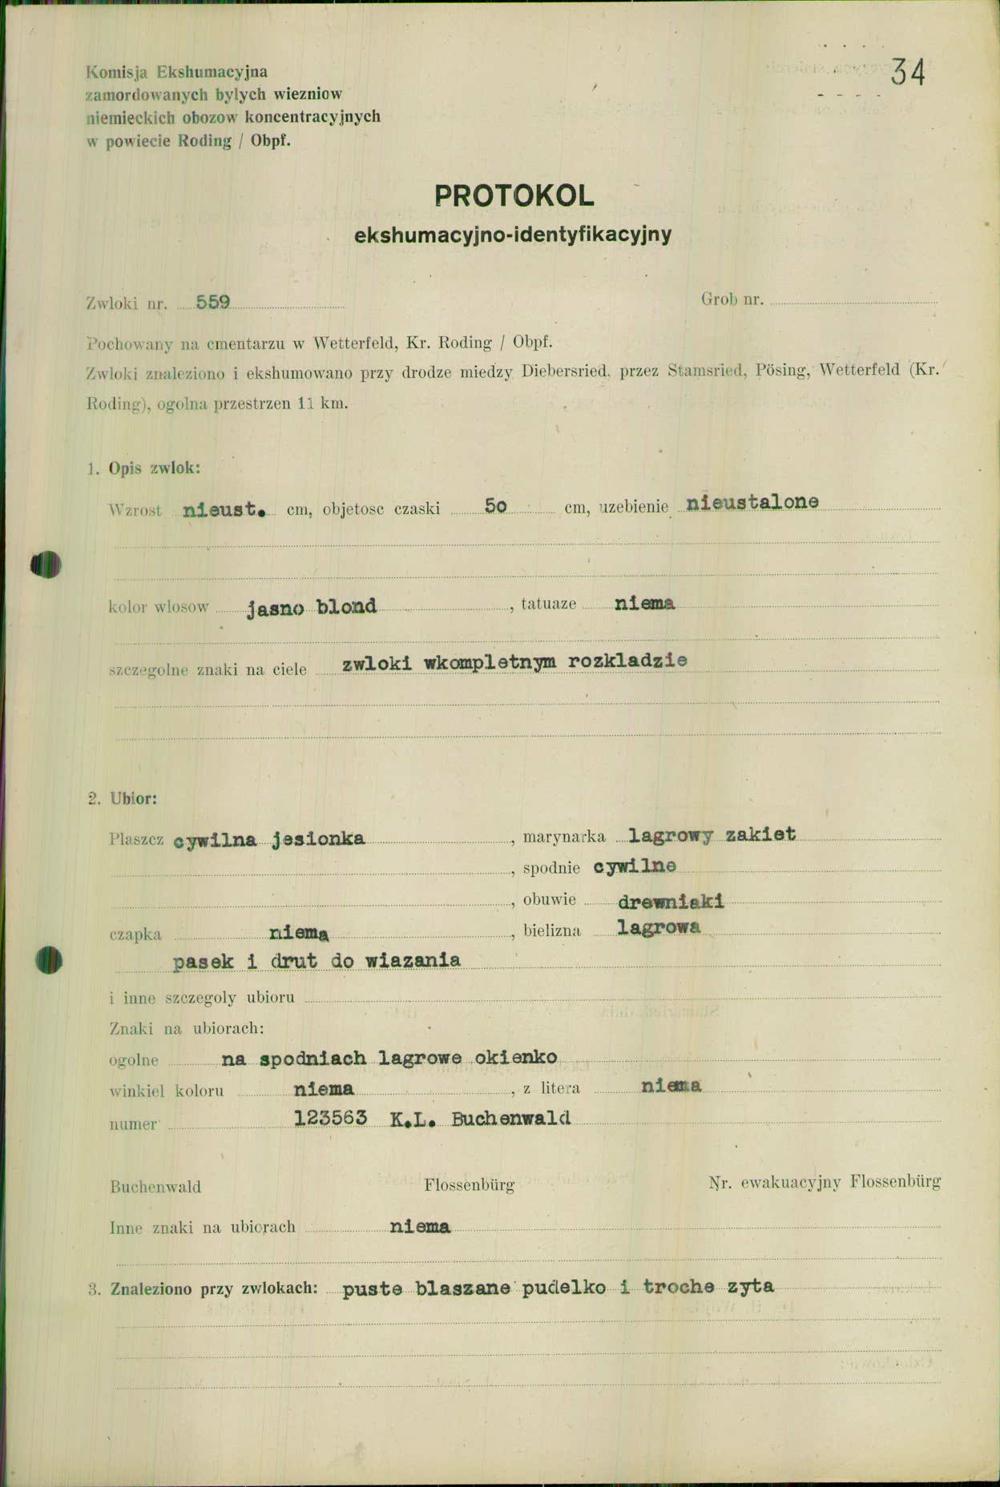 34
Komisja Ekshumacyjna
zamordowanych bylych wiezniow
niemieckich obozow koncentracyjnych
w powiecie Roding / Obpf.
PROTOKOL
ekshumacyjno-identyfikacyjny
Zwloki nr. 559 Grob nr.
Pochowany na cmentarzu w Wetterfeld, Kr. Roding / Obpf.
Zwloki znaleziono i ekshumowano przy drodze miedzy Diebersried, przez Stamsried, Pösing, Wetterfeld (Kr.
Roding), ogolna przestrzen 11 km.
1. Opis zwlok:
Wzrost nieust. cm, objetosc czaski 50 cm, uzebienie nieustalone
kolor wlosow jasno blond , tatuaze niema
szczegolne znaki na ciele zwloki wkompletnym rozkladzie
2. Ubior:
Plaszcz cywilna jesionka , marynarka lagrowy zakiet
, spodnie cywilne
, obuwie drewniaki
czapka niema , bielizna lagrowa
pasek i drut do wiazania
i inne szczegoly ubioru
Znaki na ubiorach:
ogolne na spodniach lagrowe okienko
winkiel koloru niema , z litera niema
numer 123563 K.L. Buchenwald
Buchenwald Flossenbürg Nr. ewakuacyjny Flossenbürg
Inne znaki na ubiorach niema
3. Znaleziono przy zwlokach: puste blaszane pudelko i troche zyta